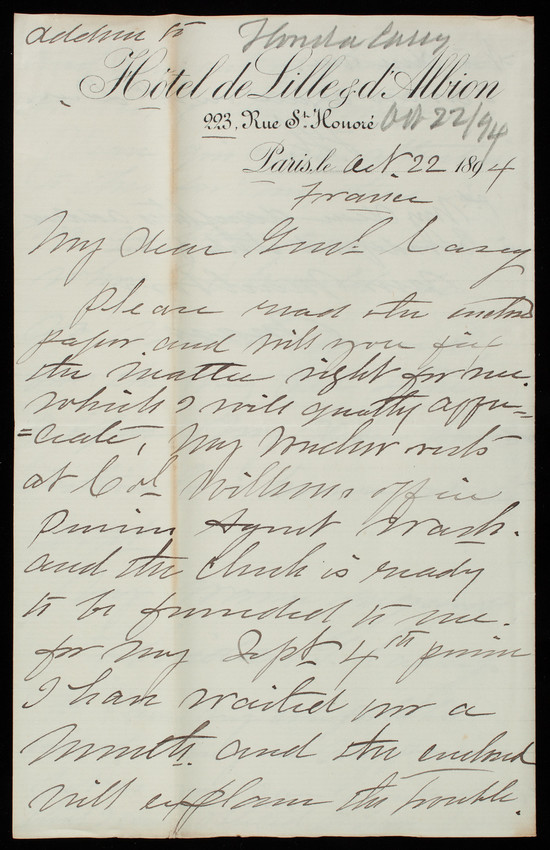 address to
Casey
Hôtel de Lille & d'Albion
223, Rue St. Honoré Oct 22/94
Paris, le Oct. 22 1894
France
My dear Genl. Casey
please read the enclosed
paper and will you fix
the matter right for me.
which I will greatly appre=
=ciate, my voucher rests
at Col Willson's office
pension Agent Wash.
and the check is ready
to be forwarded to me.
for my Sept 4th pension
I have waited over a
month. and the enclosed
will explain the trouble.